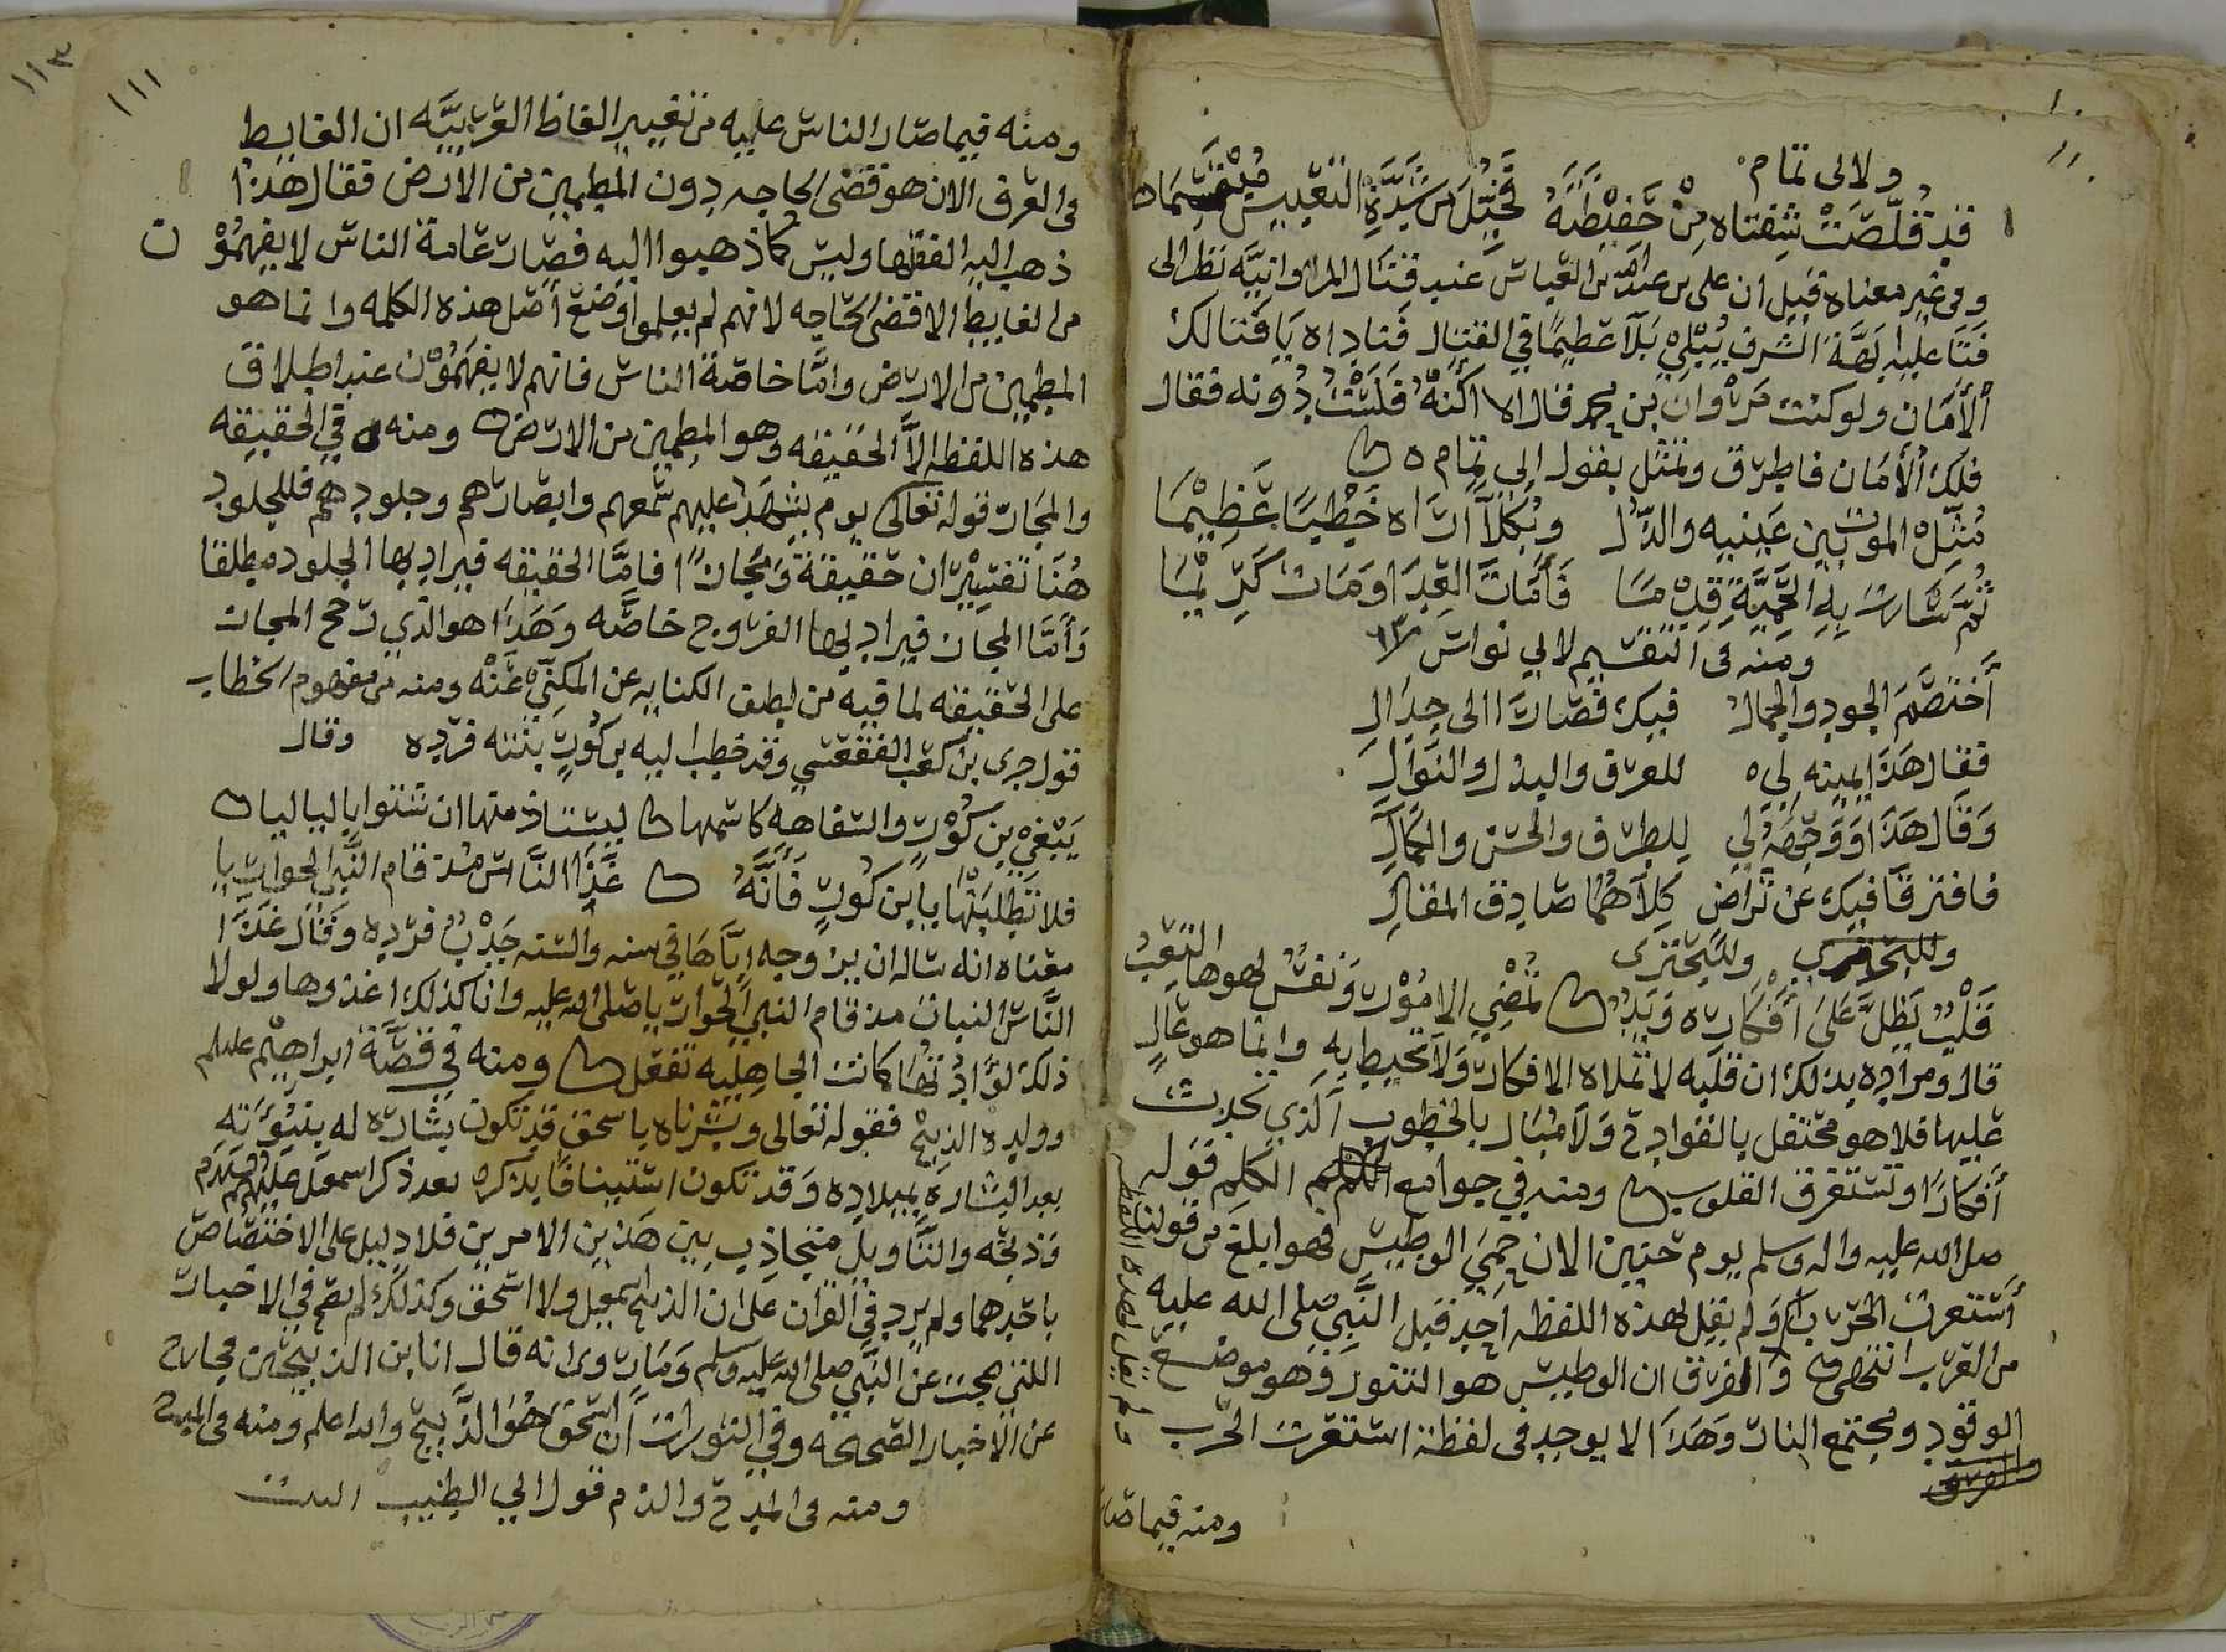 ولابى تمام
قد قلصت شفتاه من حفيظته فخيل من شدة التعبيس مبتسما
وفى غير معناه قيل ان على بن عبدالله بن العباس عند قتال المروانيه نظر الى
فتا عليه ابهة الشرف يبلي بلآ عظيمًا في القتال فناداه يا فتا لك
ألأمان ولو كنت مروان بن محمد فقال الا اكنه فلست دونه فقال
فلك ألأمان فاطرق وتمثل بقول ابى تمام ه
مثل الموت بين عينيه والذل وكلآ رآه خطبًا عظيمًا
ثم سارت به الحمية قدمًا فأمات العدا ومات كريمًا
ومنه فى التقسيم لابي نواس
أختصم الجود والجمال فيك فصارا الى جدال
فقال هذا يمينه لى للعرف والبذل والنوال
وقال هذا ووجهه لي للطرف والحسن والكمال
فافترقا فيك عن تراض كلاهما صادق المقال
وللبحترى
قلب يطل على أفكاره ويد تمضي الامور ونفس لهوها التعب
قال ومراده بذلك ان قلبه لا تملاه الافكار ولا تحيط به وانما هو عال
عليها فلا هو محتفل بالفوادح ولا مبال بالخطوب ألذي تحدث
أفكارًا وتستغرق القلوب ومنه في جوامع الكلم قوله
صلى الله عليه واله وسلم يوم حنين الان حمي الوطيس فهو ابلغ من قولنا
أستعرت الحرب ولم يقل هذه اللفظه احد قبل النبي صلى الله عليه
من العرب انتهى والفرق ان الوطيس هو التنور وهو موضع
الوقود ومجتمع النار وهذا لا يوجد فى لفظة استعرت الحرب
ومنه فيما صار
١١١
١١٣
ومنه فيما صار الناس عليه من تغيير الفاظ العربيه ان الغايط
فى العرف الان هو قضى الحاجه دون المطمين من الارض فقال هذا
ذهب اليه الفقها وليس كما ذهبوا اليه فصارت عامة الناس لا يفهمون
من الغايط الا قضى الحاجه لانهم لم يعلموا وضع أصل هذه الكلمه وانما هو
المطمين من الارض وامًا خاصة الناس فانهم لا يفهمون عند اطلاق
هذه اللفظه الا الحقيقه وهو المطمين من الارض ومنه في الحقيقه
والمجاز قوله تعالى يوم يشهد عليهم سمعهم وابصارهم وجلودهم فللجلود
هنا تفسيران حقيقة ومجازًا فامًا الحقيقه فيراد بها الجلود مطلقا
وأما المجاز فيراد بها الفروج خاصه وهذا هو الذي رجح المجاز
على الحقيقه لما فيه من لطف الكنايه عن المكنى عنه ومنه من مفهوم الخطاب
قول جرى بن كعب الفقعسي وقد خطب اليه بن كوز بنته فرده وقال
يبتغي بن كوز والسفاهه كاسمها ليستاد منها ان شتوا لياليا
فلا تطلبنها يا بن كوز فانه غذا الناس مذ قام النبي الجواريا
معناه انه ساله ان يزوجه اياها في سنه والسنه جدب فرده وقال غذا
الناس البنات مذ قام النبي الجواريا صلى الله عليه وانا كذلك اغذوها ولولا
ذلك لوادتها كما كانت الجاهليه تفعل ومنه في قصة ابراهيم عليلم
وولده الذبيح فقوله تعالى وبشرناه باسحق قد تكون بشاره له بنبوته
بعد البشاره بميلاده وقد تكون استينافا بذكره بعد ذكر اسمعيل عليهم السلام
وذبحه والتاويل متجاذب بين هذين الامرين فلا دليل على الاختصاص
باحدهما ولم يرد في القران على ان الذبيح اسمعيل ولا اسحق وكذلك لم يقع في الاخبار
اللتي صحت عن النبي صلى الله عليه وسلم وما روى انه قال انا بن الذبيحين فخارج
عن الاخبار الصحيحه وفي التورات ان اسحق هو الذبيح والله اعلم ومنه فى المدح
ومنه فى المدح والذم قول ابي الطيب